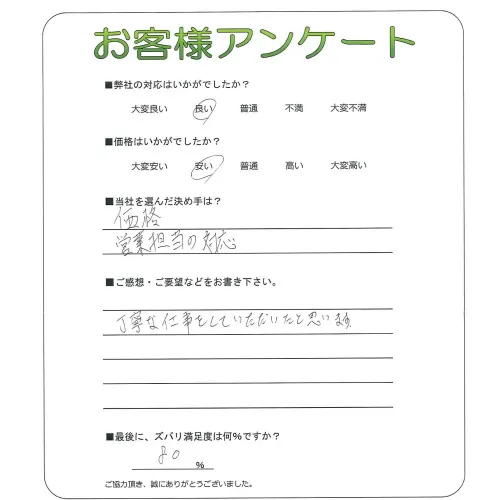 お客様アンケート
■弊社の対応はいかがでしたか？
大変良い 良い 普通 不満 大変不満
■価格はいかがでしたか？
大変安い 安い 普通 高い 大変高い
■当社を選んだ決め手は？
価格
営業担当の対応
■ご感想・ご要望などをお書き下さい。
丁寧な仕事をしていただいたと思います
■最後に、ズバリ満足度は何％ですか？
80 ％
ご協力頂き、誠にありがとうございました。